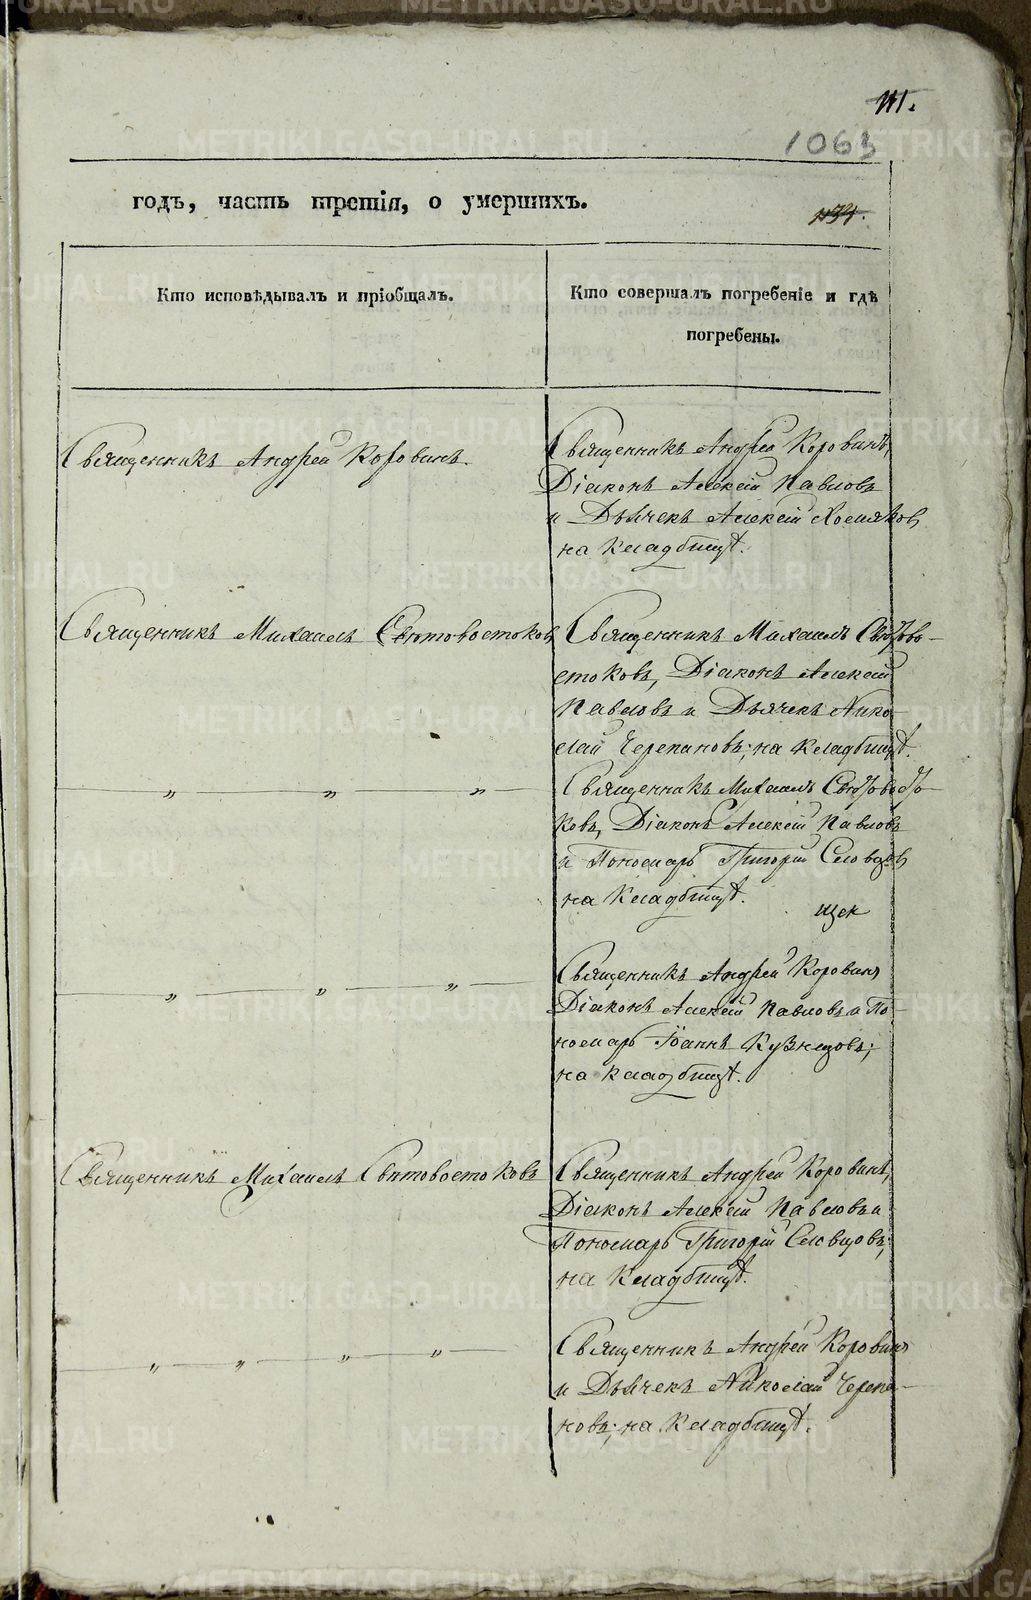 1063
годъ, часть третія, о умершихъ.
Кто исповѣдывалъ и пріобщалъ.
Кто совершалъ погребеніе и гдѣ
погребены.
Священникъ Андрей Коровинъ.
Священникъ Андрей Коровинъ,
Діаконъ Алексѣй Павловъ
и Дьячекъ Алексѣй Хомяковъ
на кладбищѣ.
Священникъ Михаилъ Свѣтовостоковъ
Священникъ Михаилъ Свѣтово-
стоковъ, Діаконъ Алексѣй
Павловъ и Дьячекъ Нико
лай Черепановъ; на кладбищѣ.
— „ — „ — „ —
Священникъ Михаилъ Свѣтовосто-
ковъ, Діаконъ Алексѣй Павловъ
и Пономарь Григорій Словцовъ
на кладбищѣ.
— „ — „ — „ —
Священникъ Андрей Коровинъ
Діаконъ Алексѣй Павловъ и По-
номарь Іоаннъ Кузнецовъ;
на кладбищѣ.
Священникъ Михаилъ Свѣтовостоковъ
Священникъ Андрей Коровинъ,
Діаконъ Алексѣй Павловъ и
Пономарь Григорій Словцовъ;
на кладбищѣ.
— „ — „ — „ — „ —
Священникъ Андрей Коровинъ
и Дьячекъ Николай Черепа-
новъ; на кладбищѣ.
METRIKI.GASO-URAL.RU